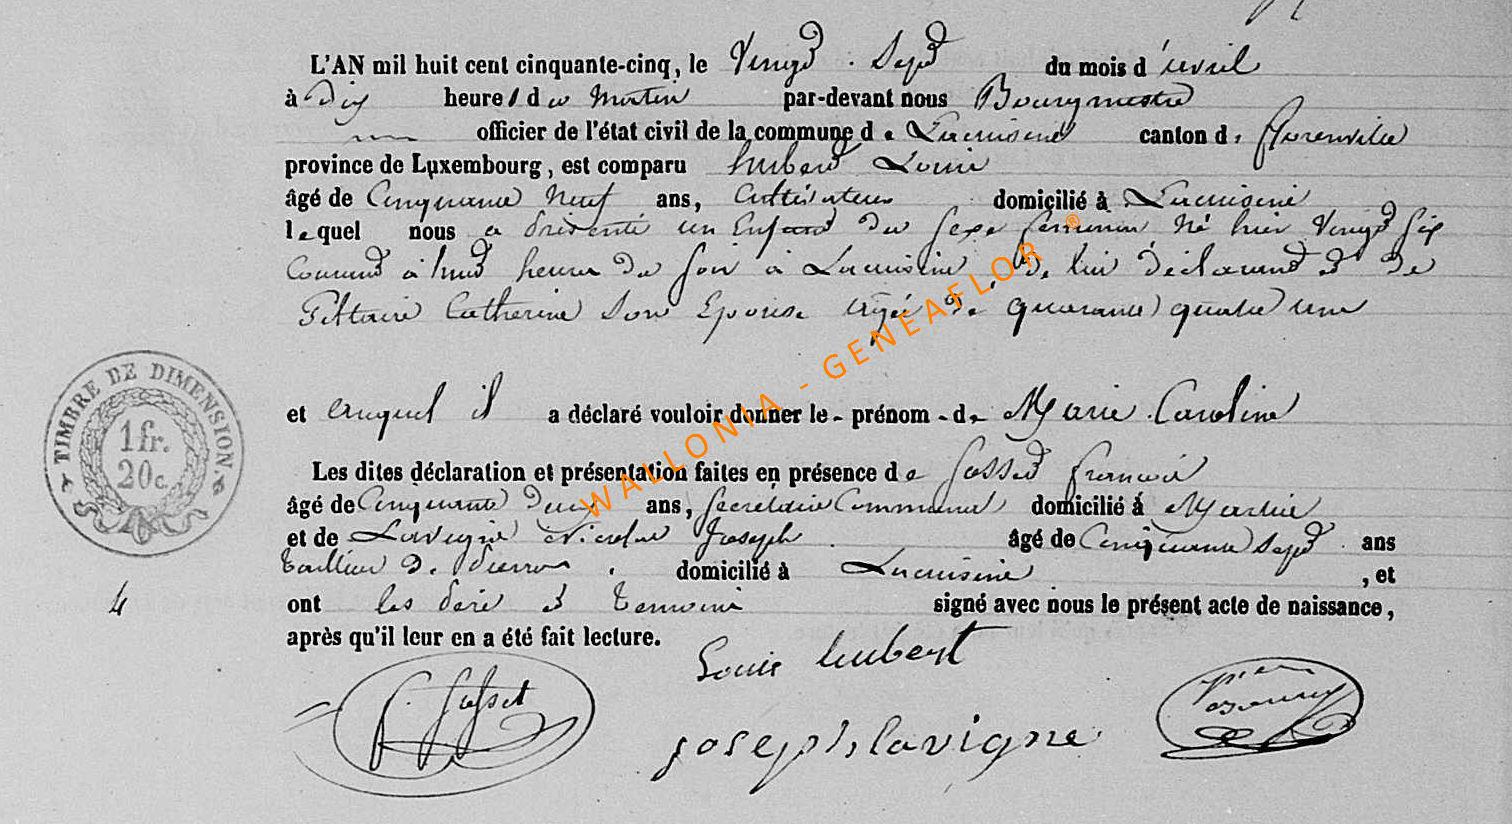 L'AN mil huit cent cinquante-cinq, le Vingt Sept du mois d'avril
à Dix heures du Matin par-devant nous Bourgmestre
officier de l'état civil de la commune de Lacuisine canton de Florenville
province de Luxembourg, est comparu hubert Louis
âgé de Cinquante Neuf ans, Cultivateur domicilié à Lacuisine
lequel nous a présenté un Enfant du Sexe feminin Né hier Vingt Six
Courant à huit heures du Soir à Lacuisine de lui déclarant et de
Catherine Son Epouse agée de quarante quatre ans
et auquel il a déclaré vouloir donner le - prénom - de Marie Caroline
Les dites déclaration et présentation faites en présence de Gosset françois
âgé de Cinquante Deux ans, Secrétaire Communal domicilié à
et de Lavigne Nicolas Joseph âgé de Cinquante Sept ans
tailleur de pierres domicilié à Lacuisine, et
ont les père et temoins signé avec nous le présent acte de naissance,
après qu'il leur en a été fait lecture.
TIMBRE DE DIMENSION
1 fr.
20c.
4
Louis hubert
joseph lavigne
WALLONIA - GENEAFLOR ®